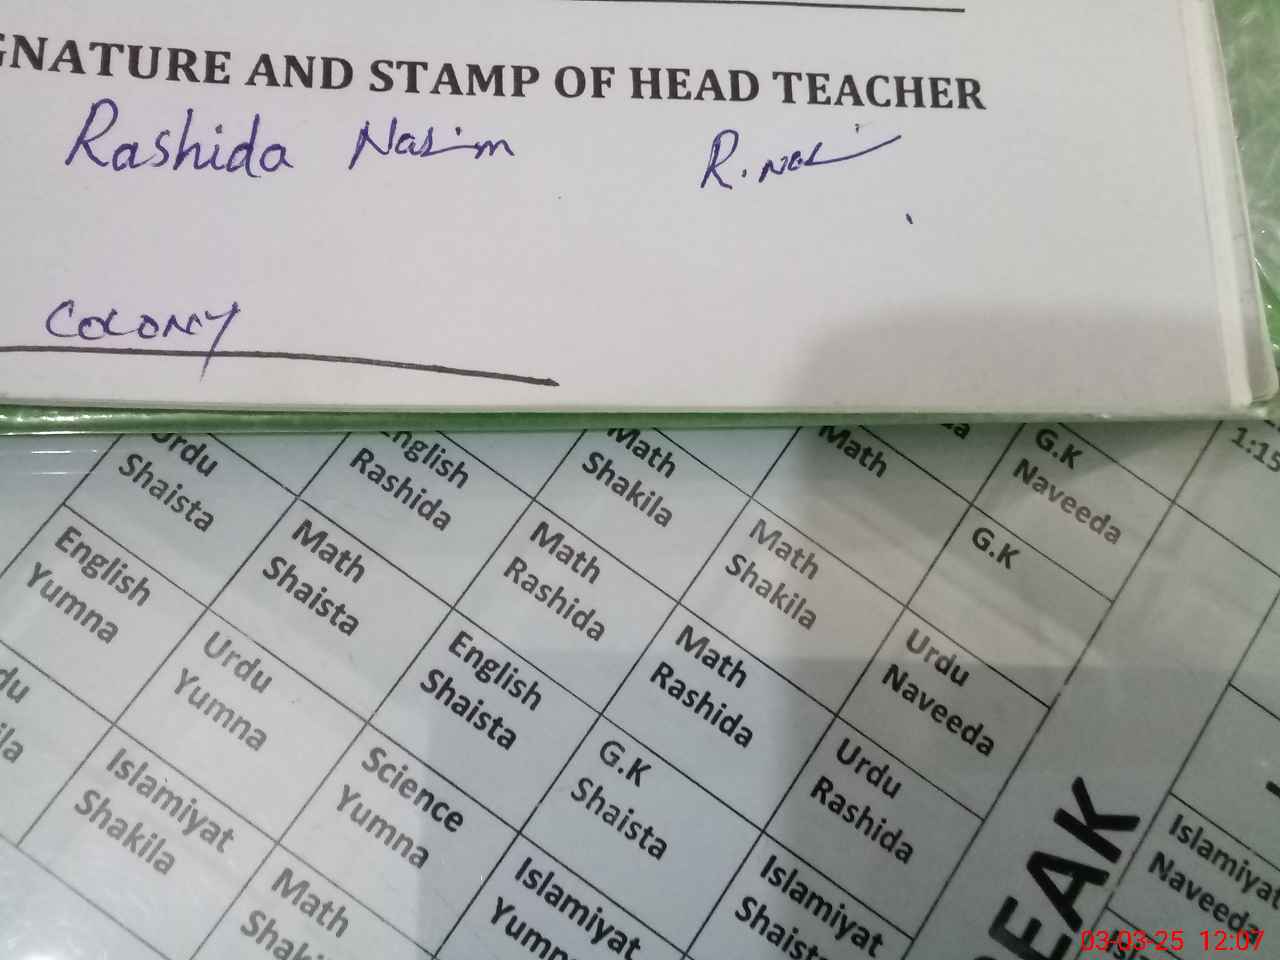 SIGNATURE AND STAMP OF HEAD TEACHER
Rashida Nasim R. Nasi
COLONY
Urdu
Shaista
English
Rashida
Math
Shakila
Math
G.K
Naveeda
1:15
English
Yumna
Math
Shaista
Math
Rashida
Math
Shakila
G.K
Urdu
Yumna
English
Shaista
Math
Rashida
Urdu
Naveeda
Islamiyat
Shakila
Science
Yumna
G.K
Shaista
Urdu
Rashida
Math
Islamiyat
Islamiyat
Islamiyat
Naveeda
03-03-25 12:07